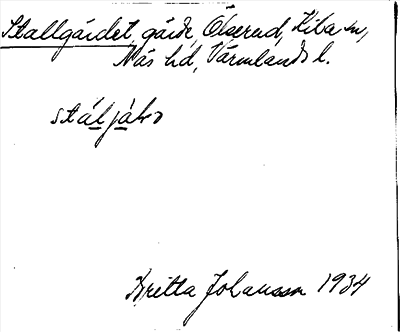 Stallgärdet, gärde, Ölserud, Kila sn,
Näs hd, Värmlands l.
stáljálʋ
Britta Johansson 1934